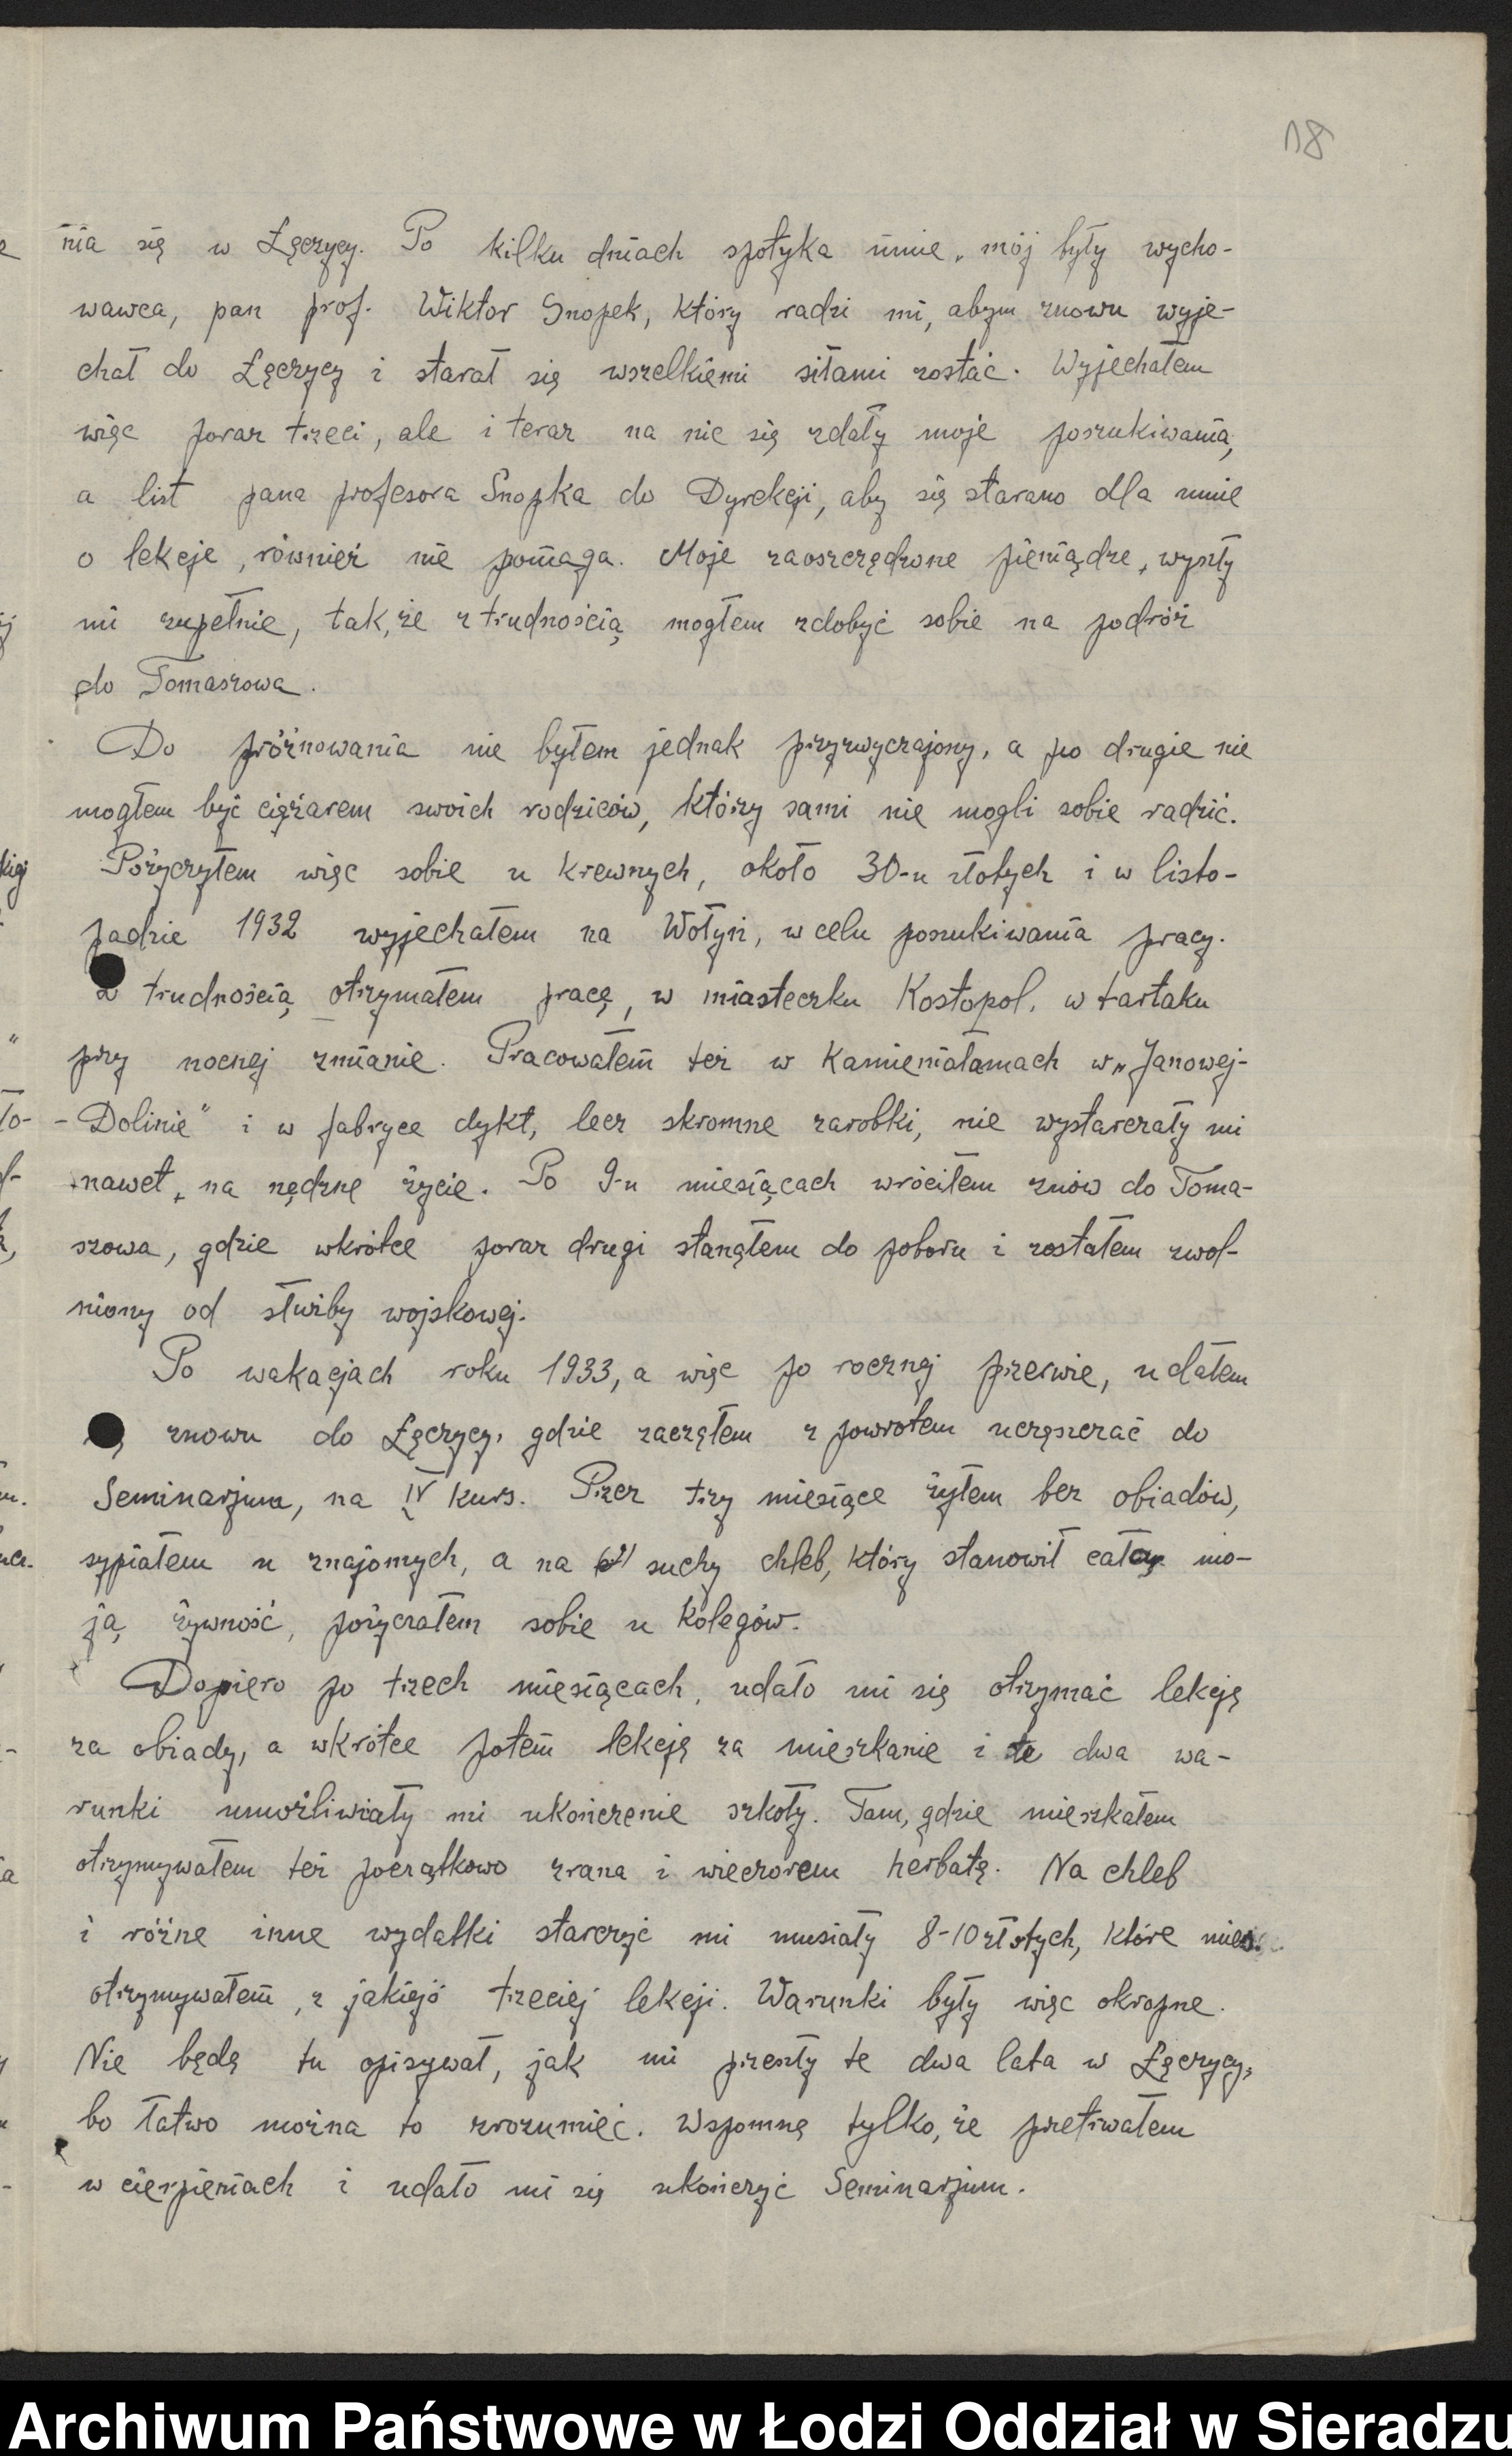 18
nia się w Łęczycy. Po kilku dniach spotyka mnie, mój były wycho-
wawca, pan prof. Wiktor Snopek, który radzi mi, abym znowu wyje-
chał do Łęczycy i starał się wszelkiemi siłami zostać. Wyjechałem
więc poraz trzeci, ale i teraz na nic się zdały moje poszukiwania,
a list pana profesora Snopka do Dyrekcji, aby się starano dla mnie
o lekcje, również nie pomaga. Moje zaoszczędzone pieniądze, wyszły
mi zupełnie, tak, że z trudnością mogłem zdobyć sobie na podróż
do Tomaszowa.
Do próżnowania nie byłem jednak przyzwyczajony, a po drugie nie
mogłem być ciężarem swoich rodziców, którzy sami nie mogli sobie radzić.
Pożyczyłem więc sobie u krewnych, około 30-u złotych i w listo-
padzie 1932 wyjechałem na Wołyń, w celu poszukiwania pracy.
Z trudnością otrzymałem pracę, w miasteczku Kostopol, w tartaku
przy nocnej zmianie. Pracowałem też w Kamieniołamach w „Janowej-
-Dolinie" i w fabryce dykt, lecz skromne zarobki, nie wystarczały mi
nawet, na nędzne życie. Po 9-u miesiącach wróciłem znów do Toma-
szowa, gdzie wkrótce poraz drugi stanąłem do poboru i zostałem zwol-
niony od służby wojskowej.
Po wakacjach roku 1933, a więc po rocznej przerwie, udałem
znowu do Łęczycy, gdzie zacząłem z powrotem uczęszczać do
Seminarjum, na IV kurs. Przez trzy miesiące żyłem bez obiadów,
sypiałem u znajomych, a na suchy chleb, który stanowił całą mo-
ją żywność, pożyczałem sobie u kolegów.
Dopiero po trzech miesiącach, udało mi się otrzymać lekcję
za obiady, a wkrótce potem lekcję za mieszkanie i te dwa wa-
runki umożliwiały mi ukończenie szkoły. Tam, gdzie mieszkałem
otrzymywałem też początkowo zrana i wieczorem herbatę. Na chleb
i różne inne wydatki starczyć mi musiały 8-10 złotych, które mies.
otrzymywałem, z jakiejś trzeciej lekcji. Warunki były więc okropne.
Nie będę tu opisywał, jak mi przeszły te dwa lata w Łęczycy,
bo łatwo można to zrozumieć. Wspomnę tylko, że przetrwałem
w cierpieniach i udało mi się ukończyć Seminarjum.
Archiwum Państwowe w Łodzi Oddział w Sieradzu